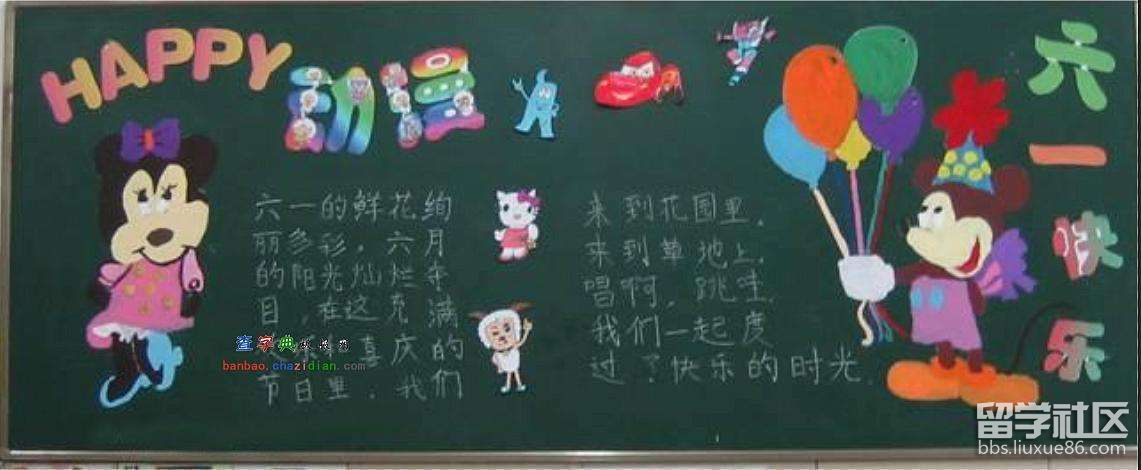 HAPPY 动漫
六一快乐
六一的鲜花绚
丽多彩，六月
的阳光灿烂夺
目，在这充满
乐和喜庆的
节日里，我们
来到花园里，
来到草地上，
唱啊，跳哇，
我们一起度
过了快乐的时光。
查字典
banbao.chazidian.com
留学社区
bbs.liuxue86.com